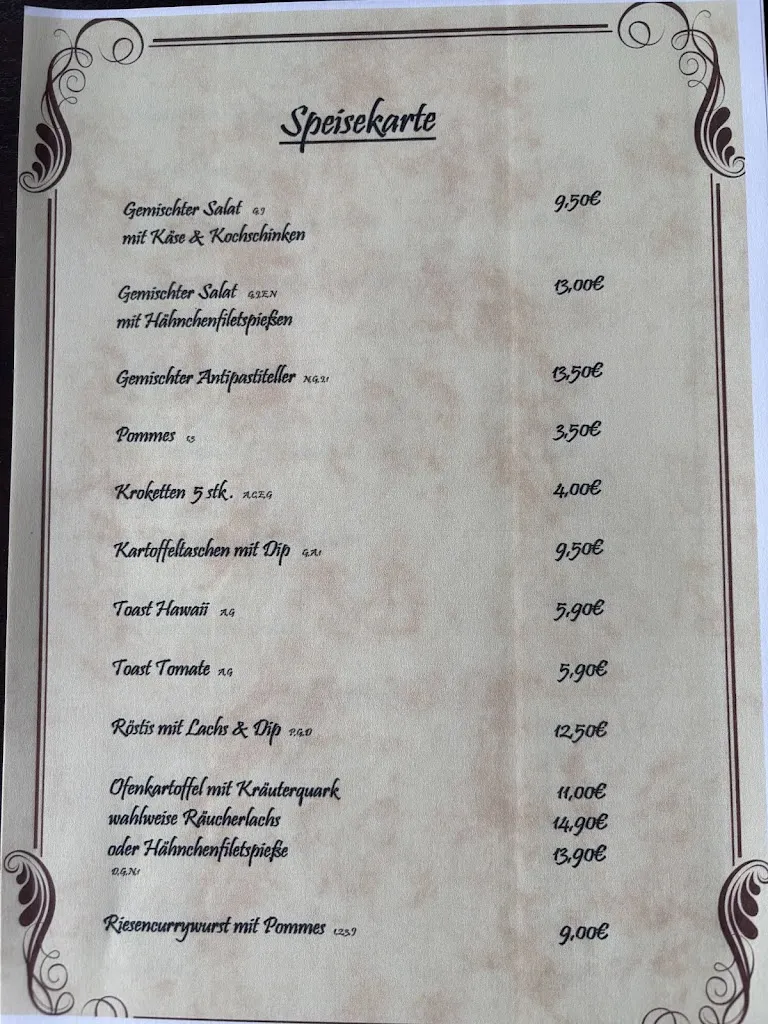 Speisekarte
Gemischter Salat G,J 9,50€
mit Käse & Kochschinken
Gemischter Salat 13,00€
mit Hähnchenfiletspießen
Gemischter Antipastiteller 13,50€
Pommes 3,50€
Kroketten 5 stk. A,C,E,G 4,00€
Kartoffeltaschen mit Dip G,A,1 9,50€
Toast Hawaii A,G 5,90€
Toast Tomate A,G 5,90€
Röstis mit Lachs & Dip 12,50€
Ofenkartoffel mit Kräuterquark 11,00€
wahlweise Räucherlachs 14,90€
oder Hähnchenfiletspieße 13,90€
Riesencurrywurst mit Pommes 9,00€